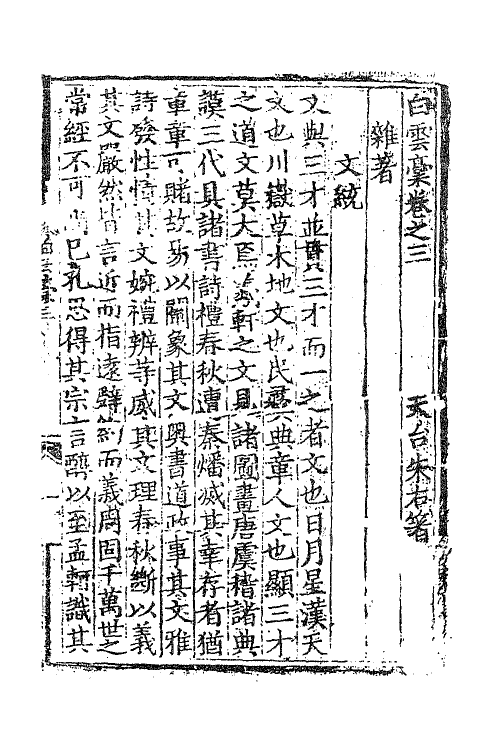 白雲稾卷之三
天台朱右著
雜著
文統
文與三才並貫三才而一之者文也日月星漢天
文也川嶽草木地文也民彝典章人文也顯三才
之道文莫大焉羲軒之文見諸圖畫唐虞稽諸典
謨三代具諸書詩禮春秋遭秦燔滅其幸存者猶
章章可睹故易以闡象其文奧書道政事其文雅
詩發性情其文婉禮辨等威其文理春秋斷以義
其文嚴然皆言近而指遠辭約而義周固千萬世之
常經不可尚已孔思得其宗言醇以至孟軻識其